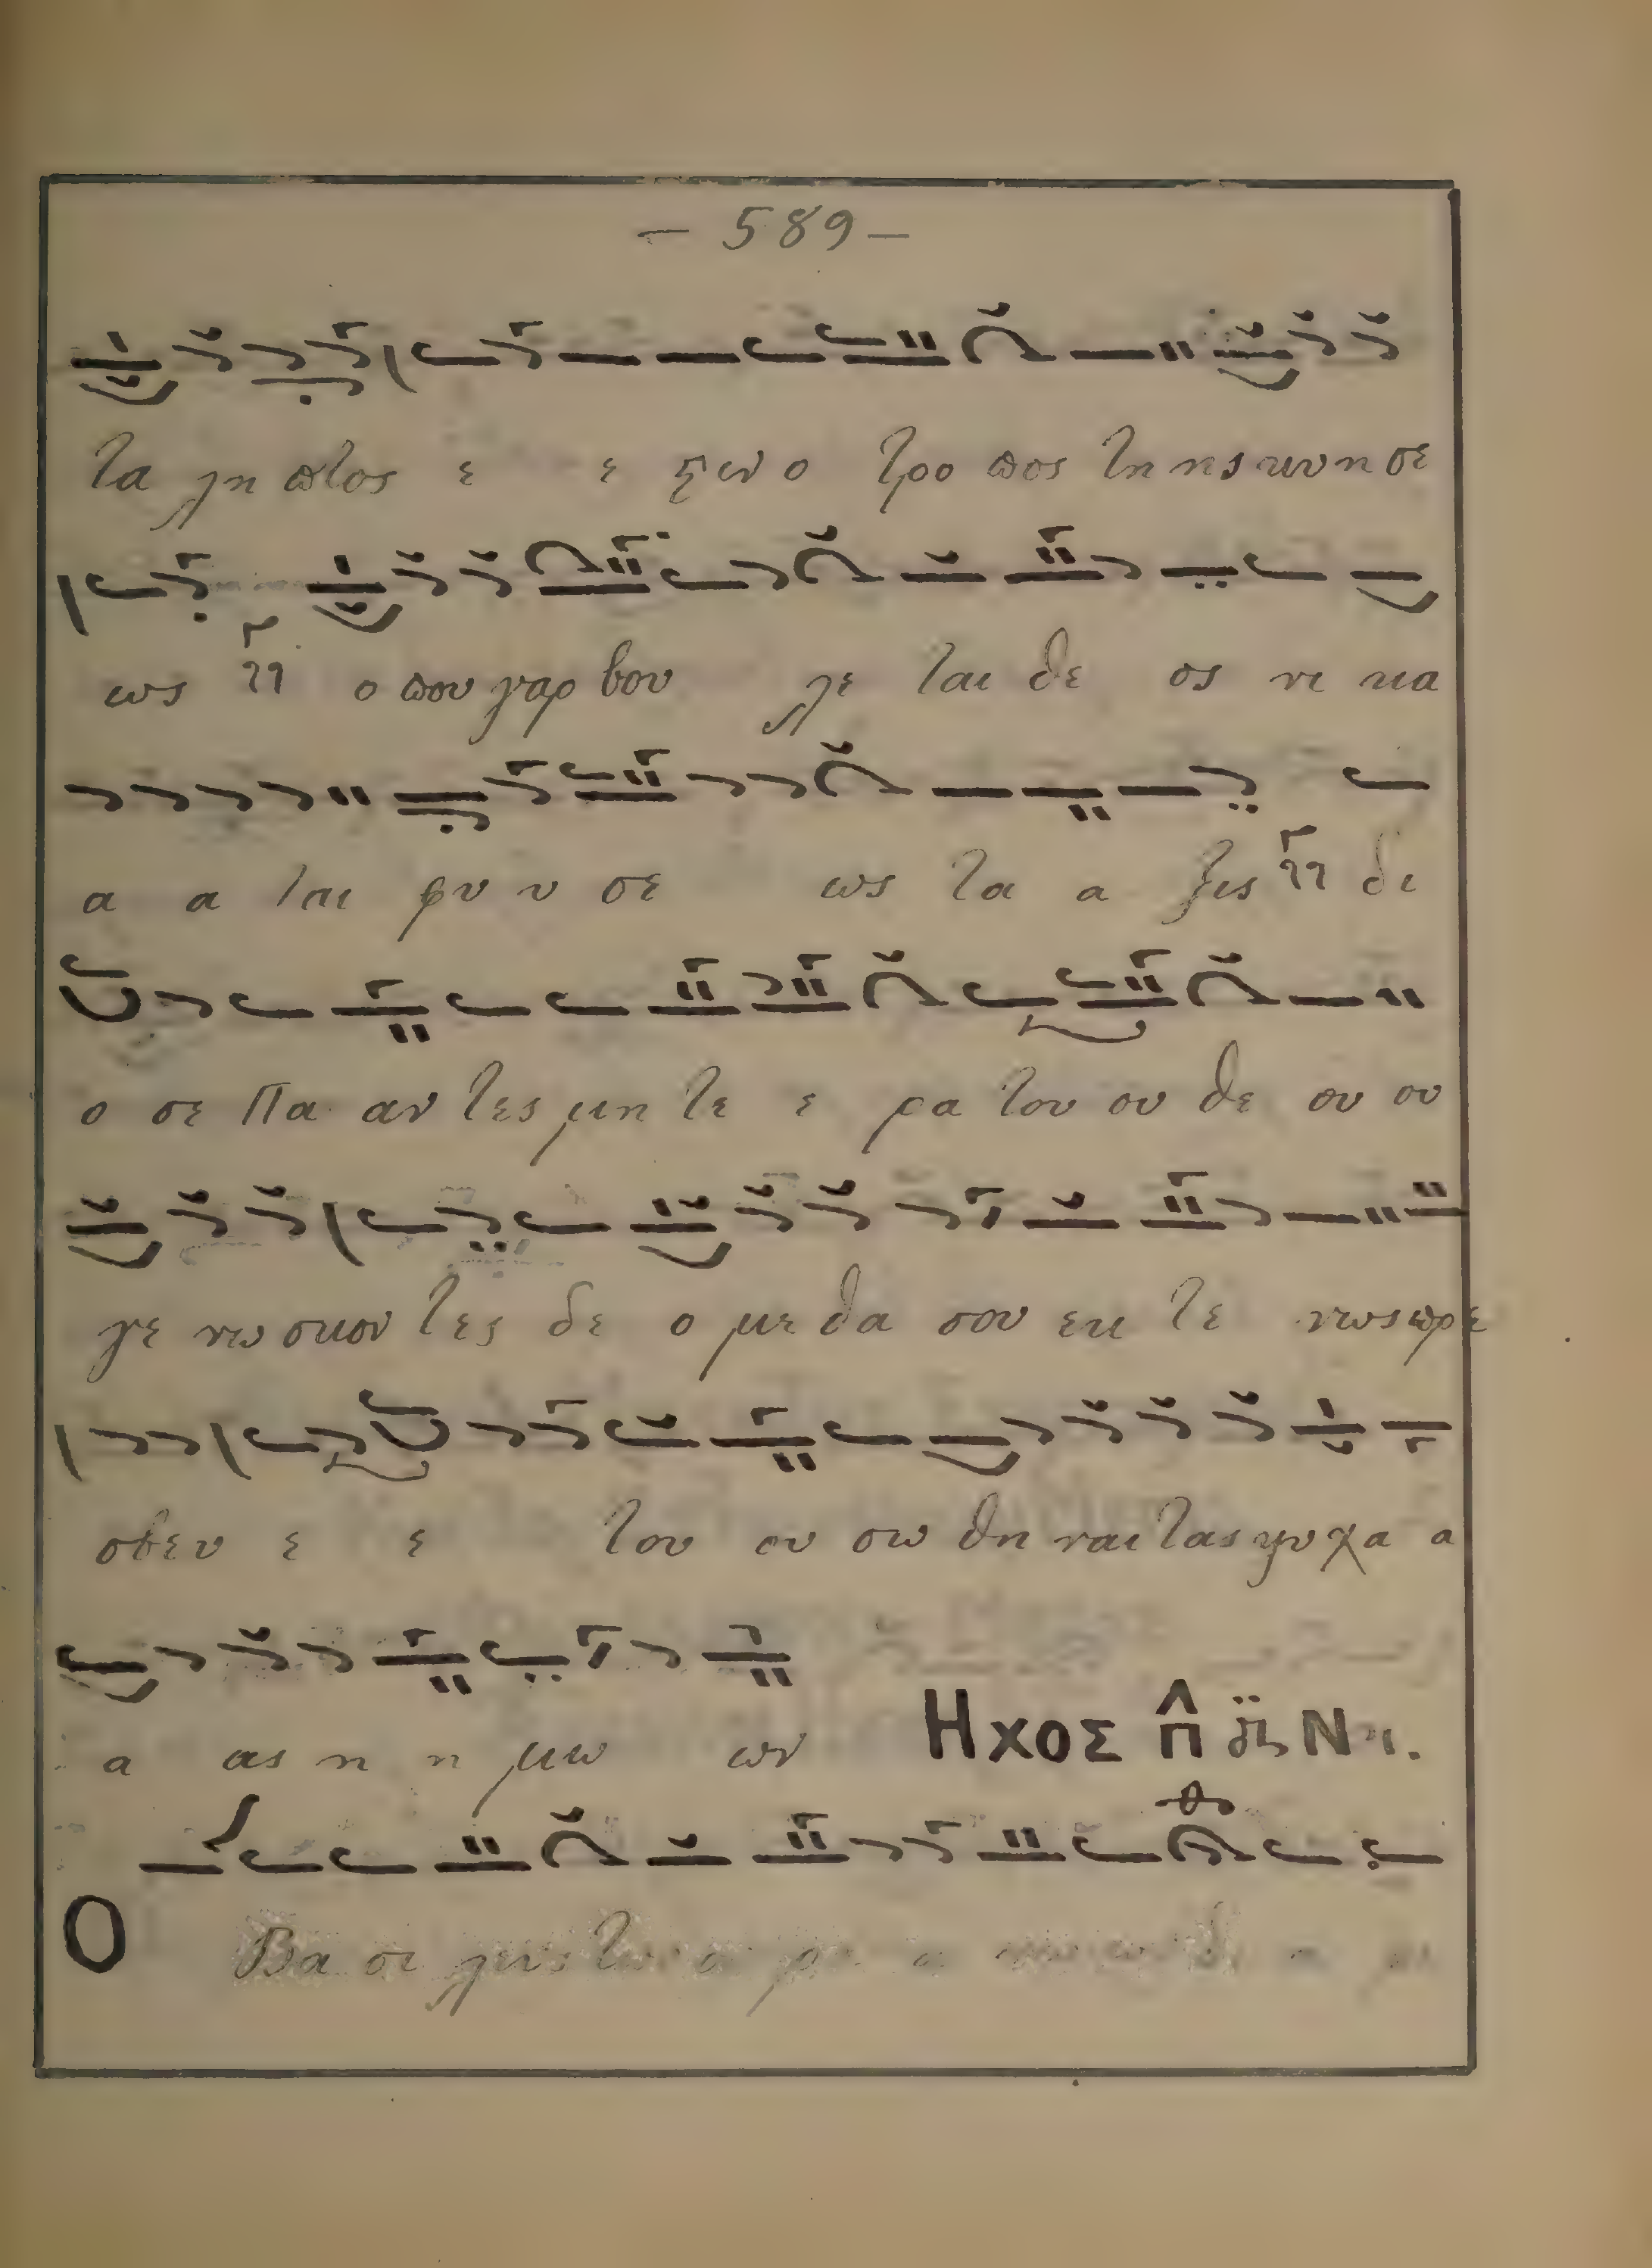 — 589 —
τα λη πτος ε ε ξεν ο τρο πος της ης κυν η σε
ως γγ ο που γαρ βου λε ται θε ος νι κα
α α ται φυ υ σε ως τα α ξις γγ δι
ο σε Πα αν τες μη τε ε ρα του ου θε ου ου
γε νω σκον τες δε ο με θα σου εκ τε νως πρε
σβευ ε ε του ου σω θη ναι τας ψυ χα α
α ας η η μω ων Ηχος π̂ δι Νη.
Ο Βα σι λευς